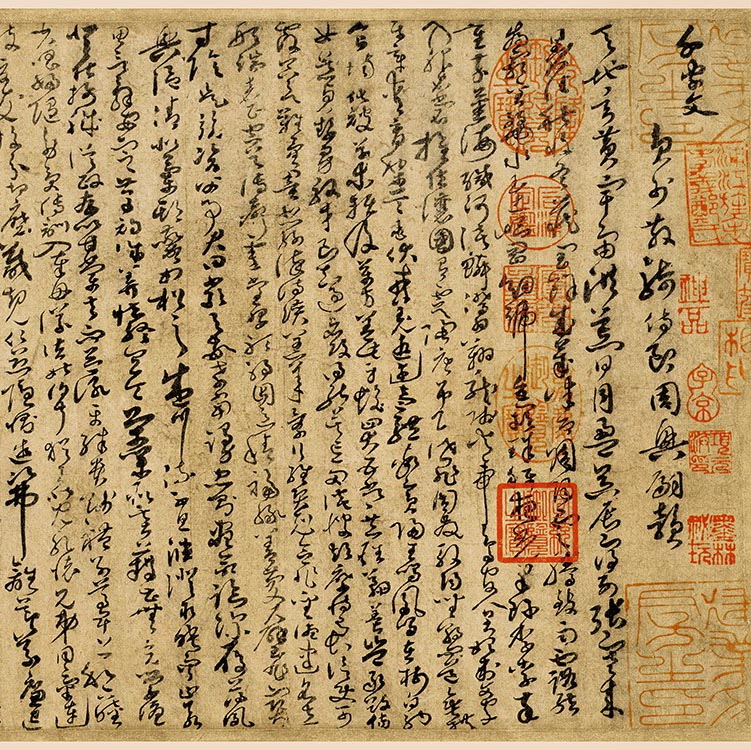 千字文
員外散騎侍郎周興嗣韻
天地玄黃宇宙洪荒日月盈昃辰宿列張寒來
暑往秋收冬藏閏餘成歲律呂調陽雲騰致雨露結
為霜金生麗水玉出崑岡劍號巨闕珠稱夜光菓珍李柰菜
重芥薑海鹹河淡鱗潛羽翔龍師火帝鳥官人皇始制文字
乃服衣裳推位讓國有虞陶唐弔民伐罪周發殷湯坐朝問道垂拱
平章愛育黎首臣伏戎羌遐邇壹體率賓歸王鳴鳳在樹白駒
食場化被草木賴及萬方蓋此身髮四大五常恭惟鞠養豈敢毀傷
女慕貞絜男效才良知過必改得能莫忘罔談彼短靡恃己長信使可
覆器欲難量墨悲絲染詩讚羔羊景行維賢剋念作聖德建名立
形端表正空谷傳聲虛堂習聽禍因惡積福緣善慶尺璧非寶
寸陰是競資父事君曰嚴與敬孝當竭力忠則盡命臨深履薄夙
興溫凊似蘭斯馨如松之盛川流不息淵澄取映容止若
思言辭安定篤初誠美慎終宜令榮業所基藉甚無竟學優
登仕攝職從政存以甘棠去而益詠樂殊貴賤禮別尊卑上和下睦
夫唱婦隨外受傅訓入奉母儀諸姑伯叔猶子比兒孔懷兄弟同氣連
枝交友投分切磨箴規仁慈隱惻造次弗離節義廉退